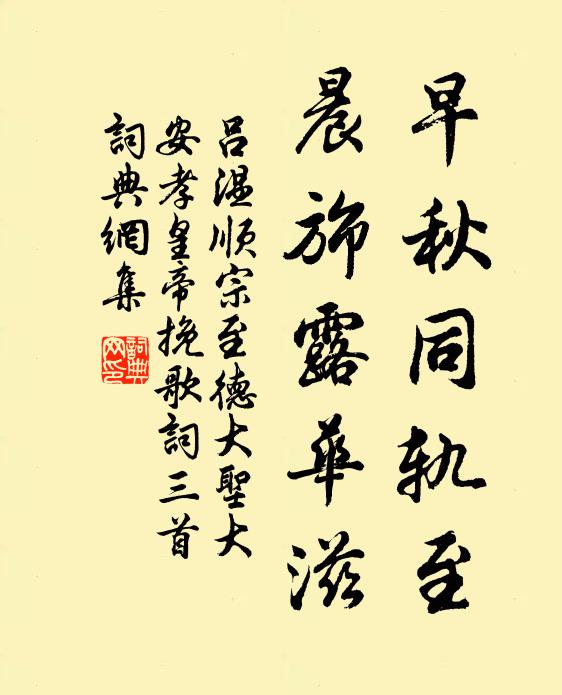 早秋同轨至
晨旆露華滋
吕温順宗至德大聖大
安孝皇帝挽歌詞三首
詞典網集
詞典
网印